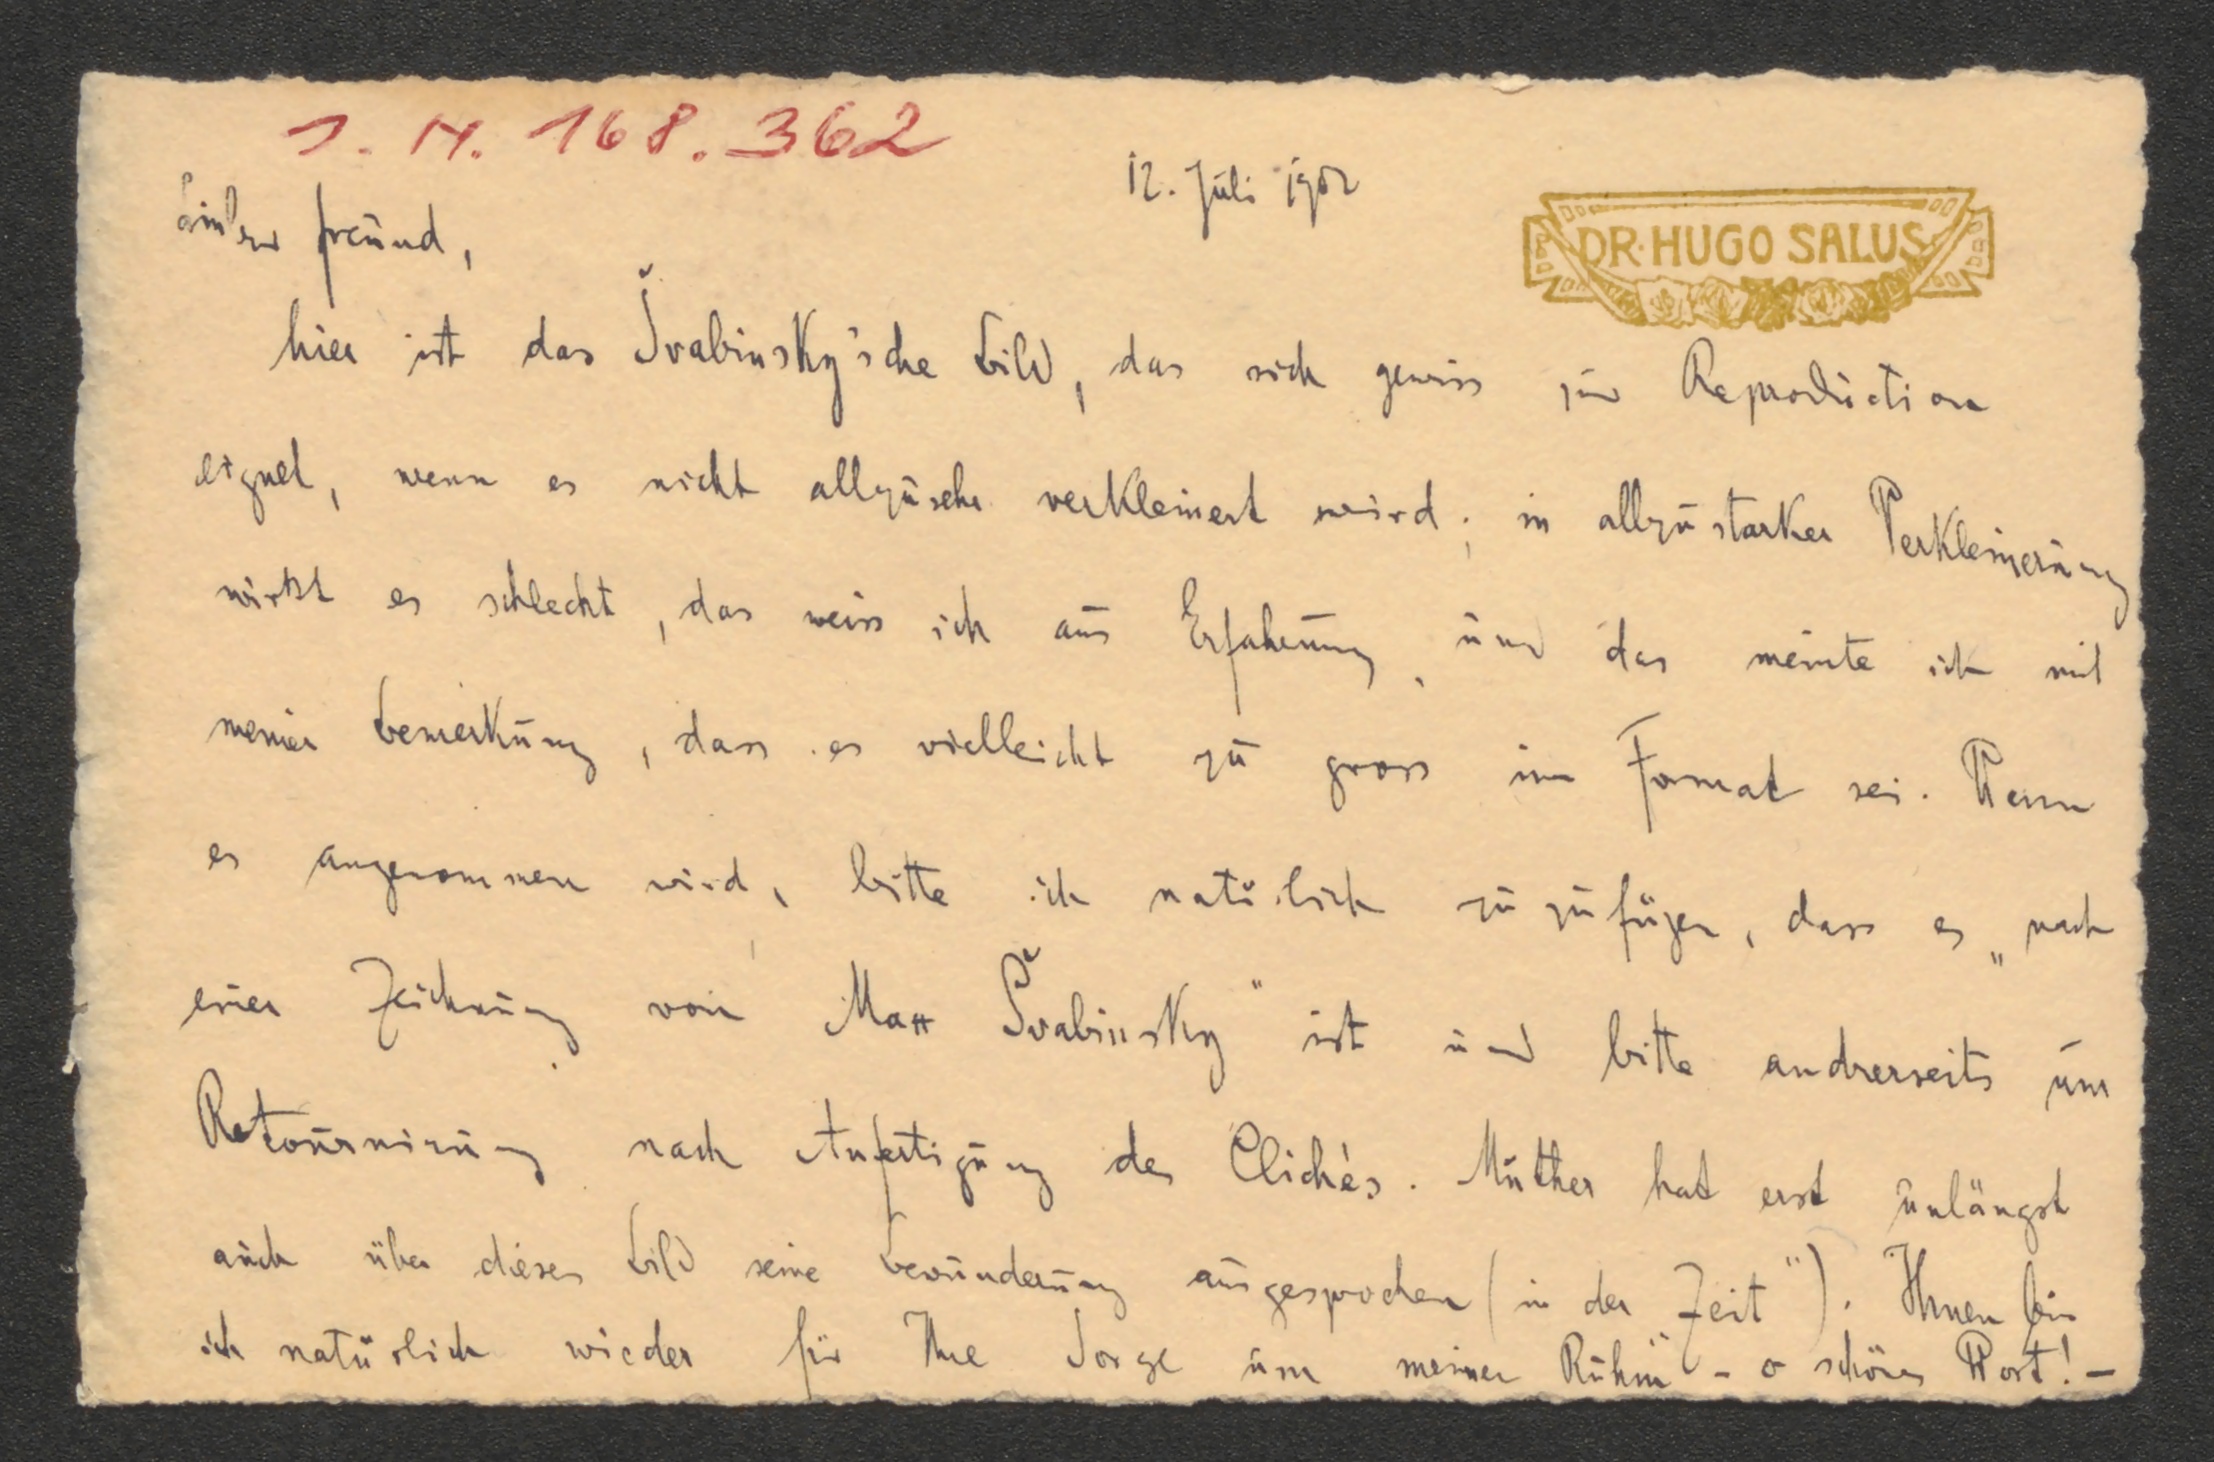 J. N. 168.362
12. Juli 1902
DR. HUGO SALUS
Lieber Freund,
hier ist das Švabinsky'sche Bild, das sich gewiss zur Reproduction
eignet, wenn es nicht allzusehr verkleinert wird; in allzu starker Verkleinerung
wirkt es schlecht, das weiss ich aus Erfahrung, und das meinte ich mit
meiner Bemerkung, dass es vielleicht zu gross im Format sei. Wenn
es angenommen wird, bitte ich natürlich zuzufügen, dass es „nach
einer Zeichnung von Max Švabinsky" ist und bitte andrerseits um
Retournirung nach Anfertigung des Clichés. Muther hat erst unlängst
auch über dieses Bild seine Bewunderung ausgesprochen (in der Zeit"). Ihnen bin
ich natürlich wieder für Ihre Sorge um meinen Ruhm" - o schönes Wort! -